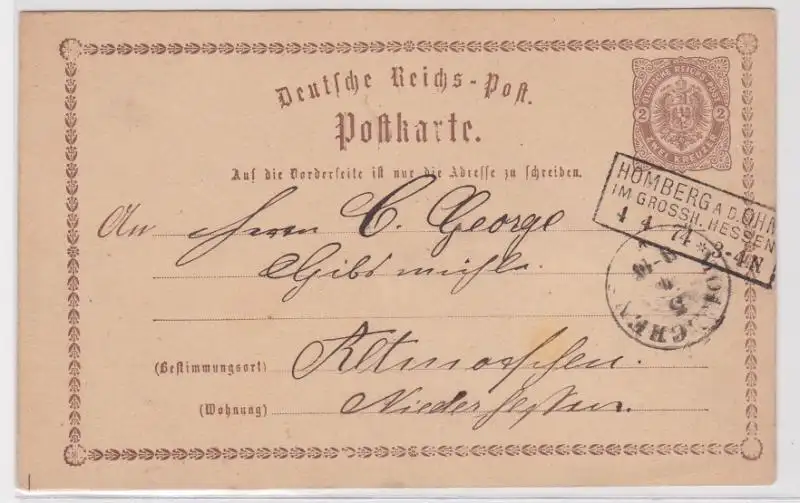 Deutsche Reichs-Post.
Postkarte.
DEUTSCHE REICHS-POST
2 2
ZWEI KREUZER
Auf die Vorderseite ist nur die Adresse zu schreiben.
HOMBERG A.D.OHM
IM GROSSH. HESSEN
4 4 74 * 3-4 N
An Herrn C. George
Gibsmühle
5
4
(Bestimmungsort) Altmorschen.
(Wohnung) Niederhessen.